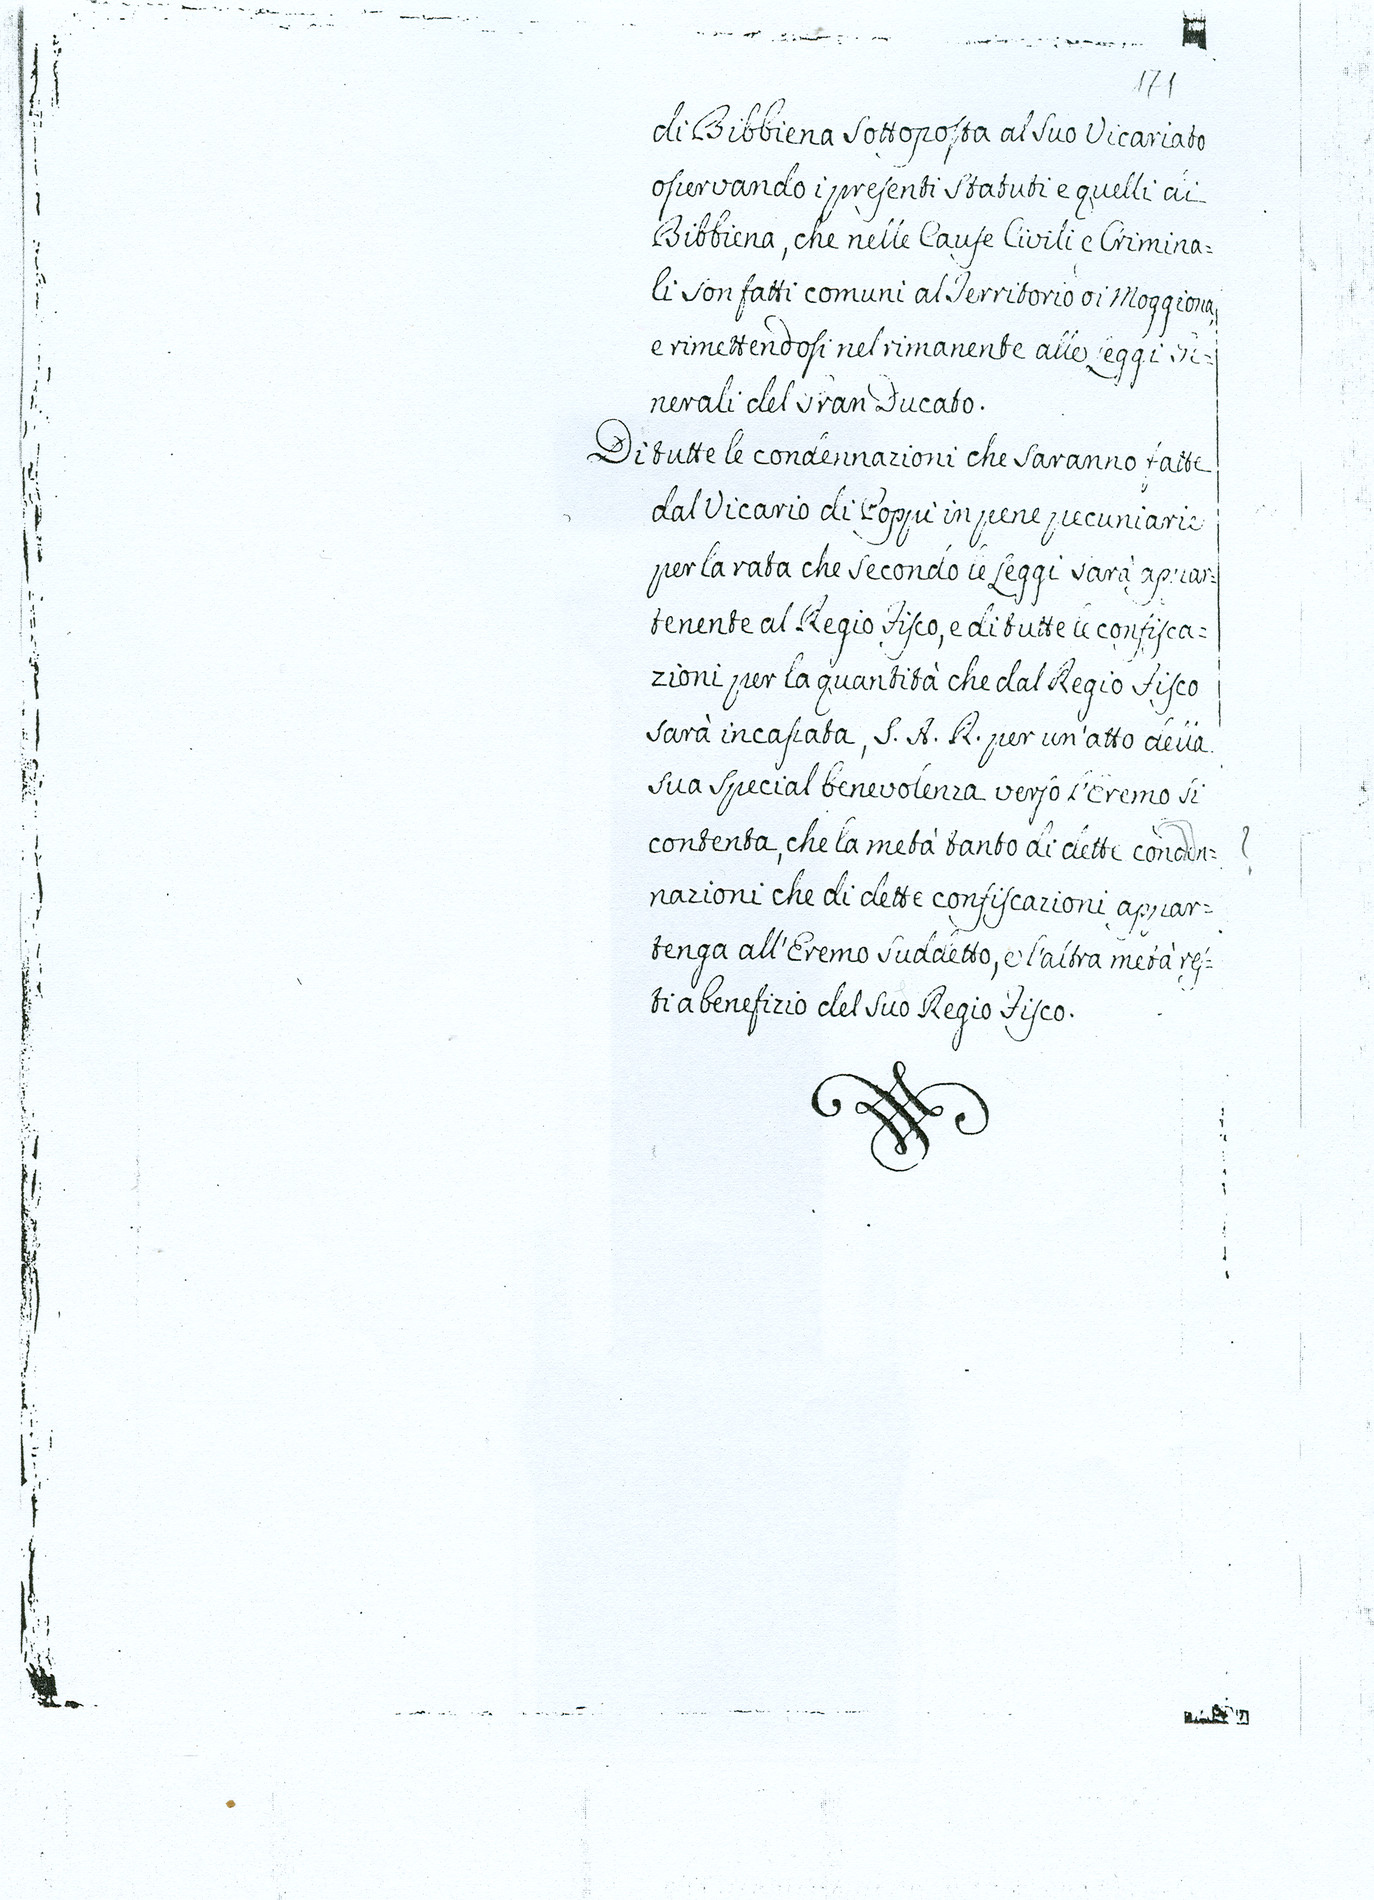 171
di Bibbiena sottoposta al suo Vicariato
osservando i presenti Statuti e quelli di
Bibbiena, che nelle Cause Civili e Crimina=
li son fatti comuni al Territorio di Moggiona,
e rimettendosi nel rimanente alle Leggi Ge=
nerali del Gran Ducato.
Di tutte le condennazioni che saranno fatte
dal Vicario di Poppi in pene pecuniarie
per la rata che secondo le Leggi sarà appar=
tenente al Regio Fisco, e di tutte le confisca=
zioni per la quantità che dal Regio Fisco
sarà incassata, S. A. R. per un'atto della
sua special benevolenza verso l'Eremo si
contenta, che la metà tanto di dette conden=
nazioni che di dette confiscazioni appar=
tenga all'Eremo suddetto, e l'altra metà res=
ti a benefizio del suo Regio Fisco.
?